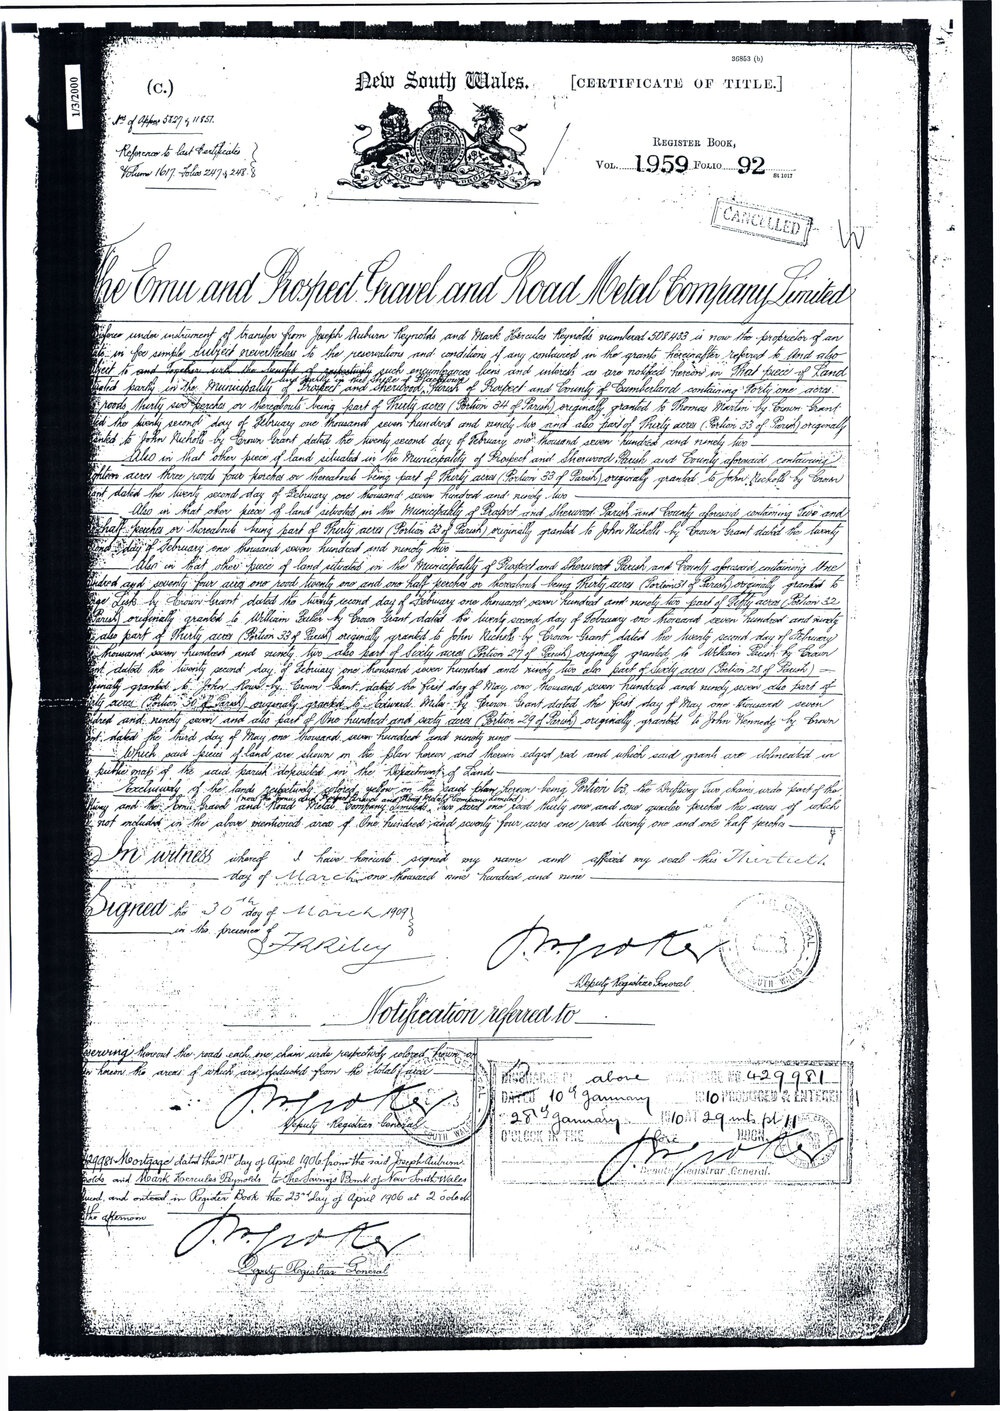 36853 (b)
(C.)
New South Wales.
[CERTIFICATE OF TITLE.]
1/3/2000
Nos of Appns 5827 & 11851.
Reference to last Certificates
Volume 1617. Folios 247 & 248.
REGISTER BOOK,
VOL. 1959 FOLIO 92
CANCELLED
W
The Emu and Prospect Gravel and Road Metal Company Limited
under instrument of transfer from Joseph Auburn Reynolds and Mark Hercules Reynolds numbered 508433 is now the proprietor of an
in fee simple subject nevertheless to the reservations and conditions if any contained in the grants hereinafter referred to And also
to and together with the benefit of respectively such encumbrances liens and interests as are notified hereon in That piece of Land
lying partly in the Suffice of Blacktown
partly in the Municipality of Prospect and Sherwood, Parish of Prospect and County of Cumberland containing Forty one acres
roods thirty two perches or thereabouts being part of Thirty acres (Portion 34 of Parish) originally granted to Thomas Martin by Crown Grant
the twenty second day of February one thousand seven hundred and ninety two and also part of Thirty acres (Portion 33 of Parish) originally
to John Nicholls by Crown Grant dated the twenty second day of February one thousand seven hundred and ninety two
Also in that other piece of land situated in the Municipality of Prospect and Sherwood Parish and County aforesaid containing
acres three roods four perches or thereabouts being part of Thirty acres (Portion 33 of Parish) originally granted to John Nicholls by Crown
dated the twenty second day of February one thousand seven hundred and ninety two
Also in that other piece of land situated in the Municipality of Prospect and Sherwood Parish and County aforesaid containing Two and
half perches or thereabouts being part of Thirty acres (Portion 33 of Parish) originally granted to John Nicholls by Crown Grant dated the twenty
day of February one thousand seven hundred and ninety two
Also in that other piece of land situated in the Municipality of Prospect and Sherwood Parish and County aforesaid containing One
and seventy four acres one rood twenty one and one half perches or thereabouts being Thirty acres (Portion 31 of Parish) originally granted to
Lisk by Crown Grant dated the twenty second day of February one thousand seven hundred and ninety two part of Fifty acres (Portion 32
Parish) originally granted to William by Crown Grant dated the twenty second day of February one thousand seven hundred and ninety
also part of Thirty acres (Portion 33 of Parish) originally granted to John Nicholls by Crown Grant dated the twenty second day of February
thousand seven hundred and ninety two also part of Sixty acres (Portion 27 of Parish) originally granted to William Parish by Crown
dated the twenty second day of February one thousand seven hundred and ninety two also part of Sixty acres (Portion 28 of Parish)
granted to John Rowe by Crown Grant dated the first day of May one thousand seven hundred and ninety seven also part of
acres (Portion 30 of Parish) originally granted to Edward by Crown Grant dated the first day of May one thousand seven
and ninety seven and also part of One hundred and sixty acres (Portion 29 of Parish) originally granted to John Kennedy by Crown
dated the third day of May one thousand seven hundred and ninety nine
Which said pieces of land are shewn in the plan hereon and therein edged red and which said grants are delineated in
public map of the said parish deposited in the Department of Lands
Exclusively of the lands respectively colored yellow on the said plan hereon being Portion 63, the Driftway Two chains wide part of the
(now The Emu and Prospect Gravel and Road Metal Company Limited)
and the Emu Gravel and Road Metal Company Limited Two acres one rood thirty one and one quarter perches the areas of which
not included in the above mentioned area of One hundred and seventy four acres one rood twenty one and one half perches
In witness whereof I have hereunto signed my name and affixed my seal this Thirtieth
day of March one thousand nine hundred and nine
Signed the 30th day of March 1909
in the presence of
Deputy Registrar General
Notification referred to
thereout the roads each one chain wide respectively colored brown
hereon the areas of which are deducted from the total area
Deputy Registrar General
429981 Mortgage dated the 21st day of April 1906 from the said Joseph Auburn
and Mark Hercules Reynolds to The Savings Bank of New South Wales
and entered in Register Book the 23rd day of April 1906 at 2 o'clock
the afternoon
Deputy Registrar General
DISCHARGE OF above MORTGAGE NO. 429981
DATED 10th January 1910 PRODUCED & ENTERED
28th January 1910 AT 29 mts pt 11
O'CLOCK IN THE fore NOON.
Deputy Registrar General.